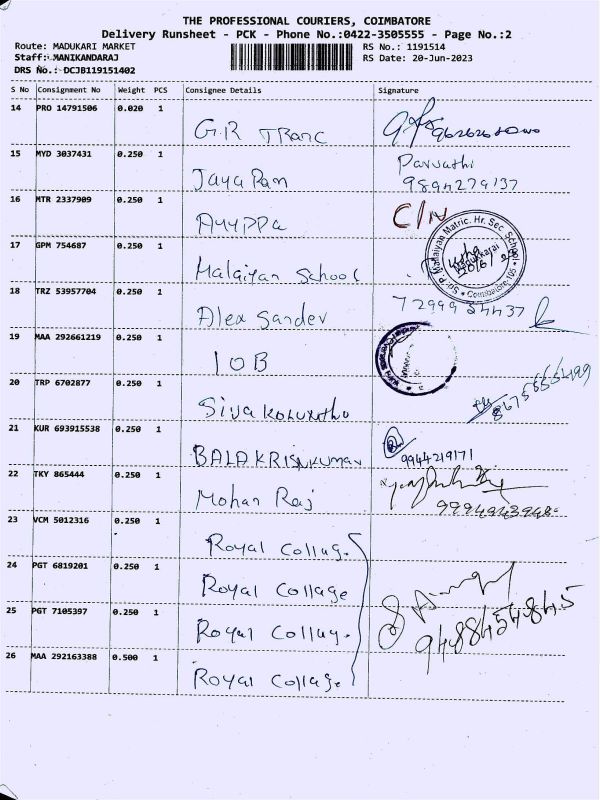 THE PROFESSIONAL COURIERS, COIMBATORE
Delivery Runsheet - PCK - Phone No.:0422-3505555 - Page No.:2
Route: MADUKARI MARKET RS No.: 1191514
Staff: MANIKANDARAJ RS Date: 20-Jun-2023
DRS No.: DCJB119151402
S No Consignment No Weight PCS Consignee Details Signature
14 PRO 14791506 0.020 1
G.R
15 MYD 3037431 0.250 1 Parvathi
Jaya Ram 9894279137
16 MTR 2337909 0.250 1 C/N
Ayyppa
17 GPM 754687 0.250 1
Malaiyan School
Malaiyan Matric. Hr. Sec. School
Coimbatore-105
18 TRZ 53957704 0.250 1
Alex Sandev 72999 84437
19 MAA 292661219 0.250 1
IOB
20 TRP 6702877 0.250 1
Siva
21 KUR 693915538 0.250 1
BALAKRISNKUMAR 9944219171
22 TKY 865444 0.250 1
Mohan Raj 9994943948
23 VCM 5012316 0.250 1
Royal Collag.
24 PGT 6819201 0.250 1
Royal Collage
25 PGT 7105397 0.250 1
Royal Collag. 9488454845
26 MAA 292163388 0.500 1
Royal Collage